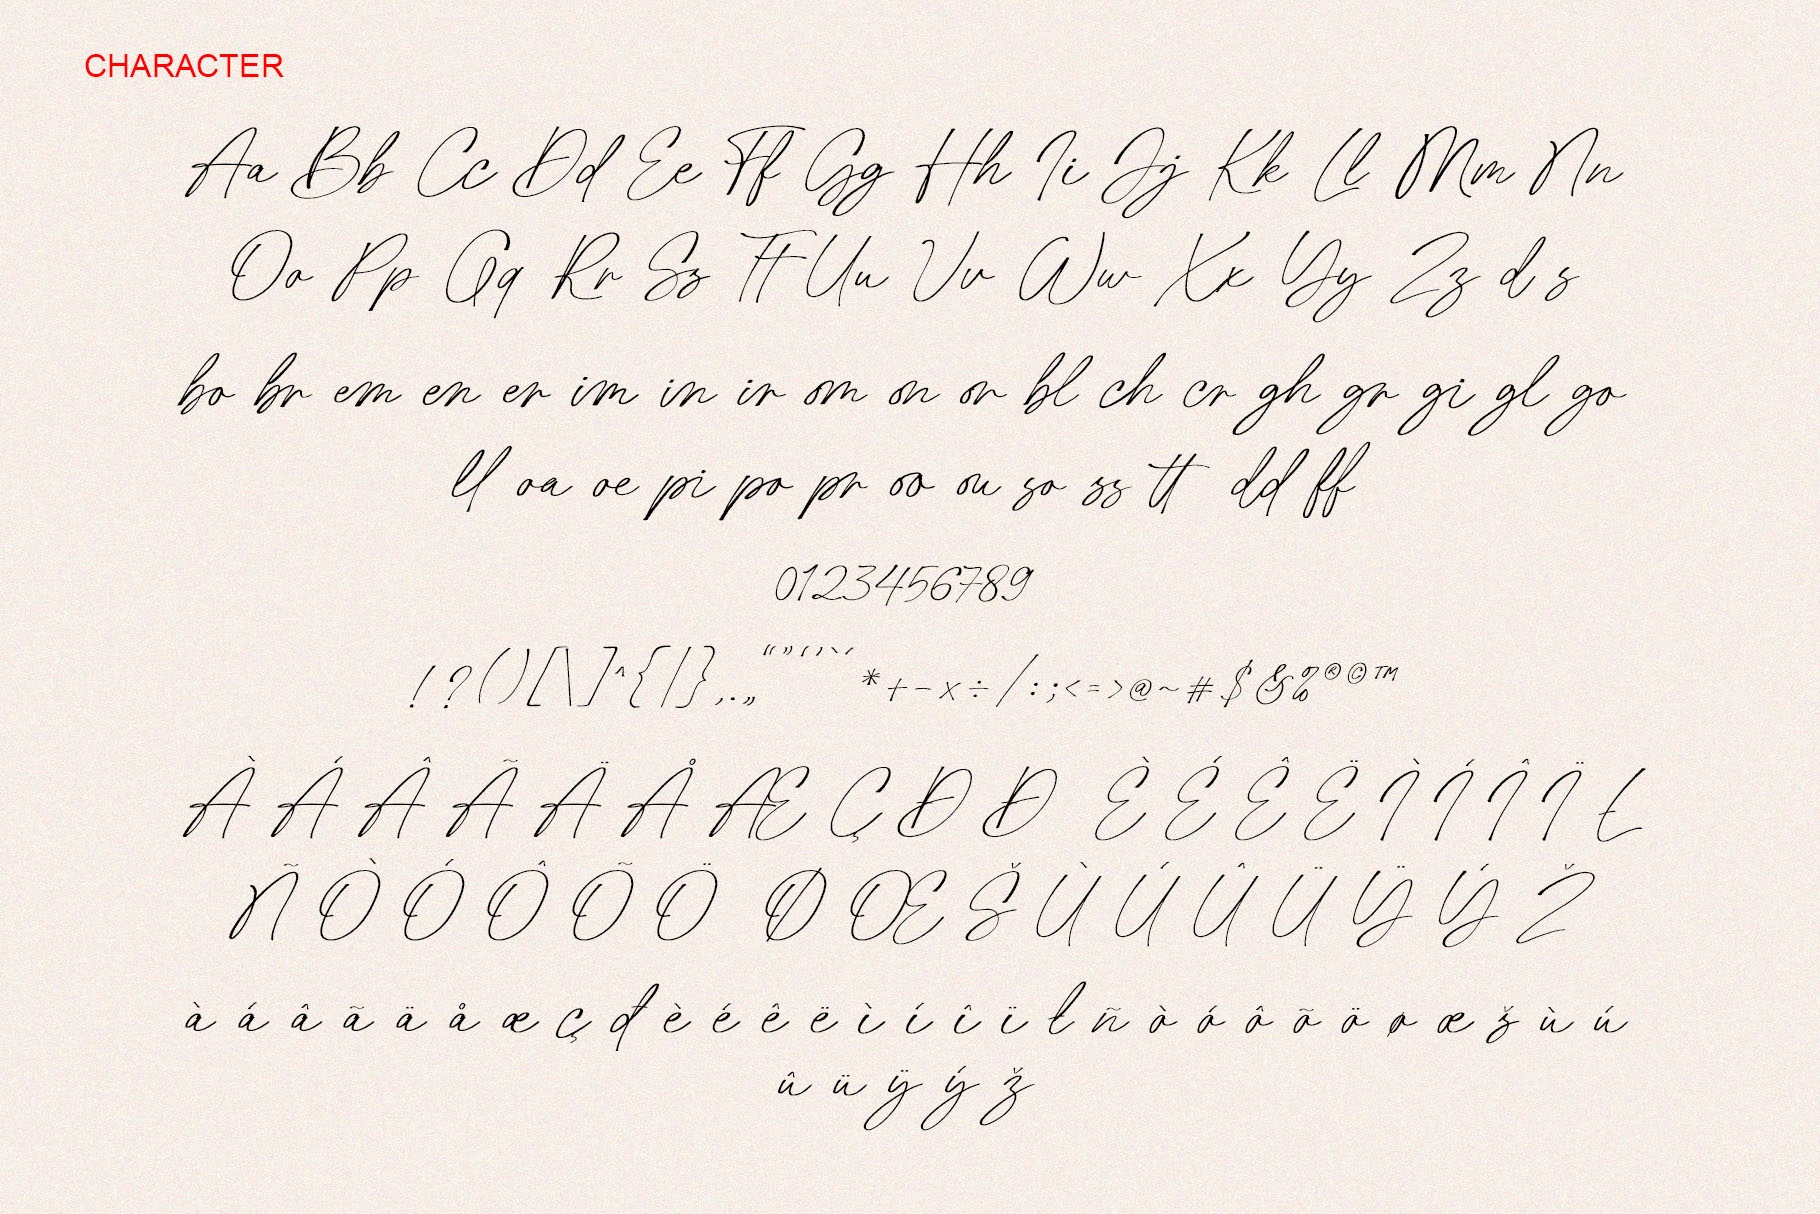 CHARACTER
Aa Bb Cc Dd Ee Ff Gg Hh Ii Jj Kk Ll Mm Nn
Oo Pp Qq Rr Ss Tt Uu Vv Ww Xx Yy Zz d s
bo br em en er im in ir om on or bl ch cr gh gr gi gl go
ll oa oe pi po pr oo ou so ss tt dd ff
0123456789
!?()[\]^{|},.„“”‘’`´*+-×÷/:;<=>@~#$&%®©™
À Á Â Ã Ä Å Æ Ç Ð Đ È É Ê Ë Ì Í Î Ï Ł
Ñ Ò Ó Ô Õ Ö Ø Œ Š Ù Ú Û Ü Ÿ Ý Ž
à á â ã ä å æ ç đ è é ê ë ì í î ï ł ñ ò ó ô õ ö ø œ š ù ú
û ü ÿ ý ž